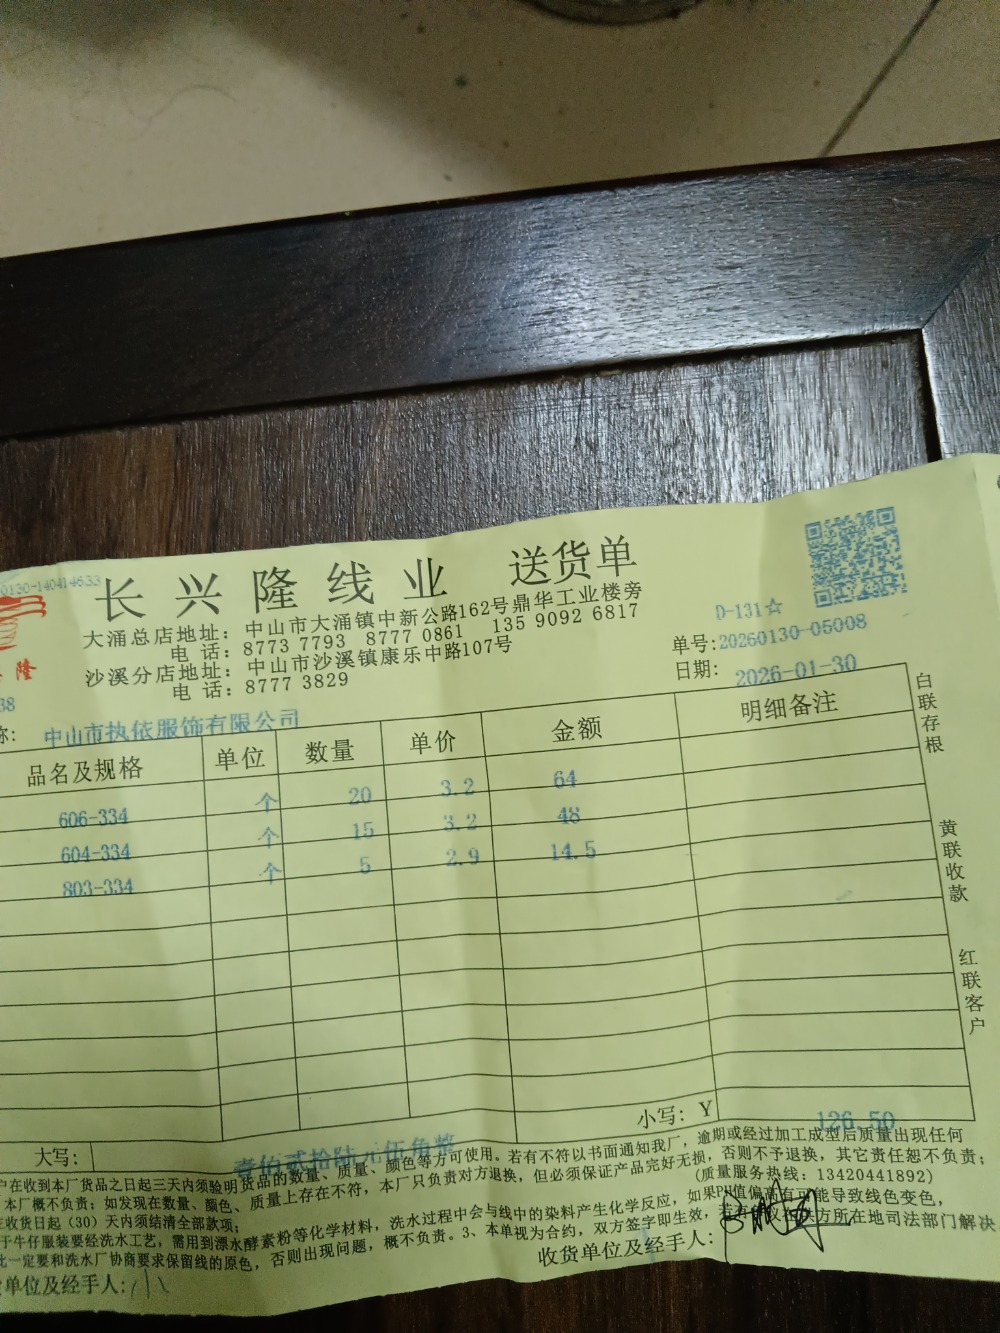 0130-140414633
长兴隆线业 送货单
大涌总店地址: 中山市大涌镇中新公路162号鼎华工业楼旁
电 话: 8773 7793 8777 0861 135 9092 6817
沙溪分店地址: 中山市沙溪镇康乐中路107号
电 话: 8777 3829
隆
D-131☆
单号:20260130-05008
日期: 2026-01-30
38
称: 中山市执依服饰有限公司
品名及规格 单位 数量 单价 金额 明细备注
606-334 个 20 3.2 64
604-334 个 15 3.2 48
803-334 个 5 2.9 14.5
白联存根
黄联收款
红联客户
大写: 壹佰贰拾陆元伍角整 小写: Y 126.50
户在收到本厂货品之日起三天内须验明货品的数量、质量、颜色等方可使用。若有不符以书面通知我厂, 逾期或经过加工成型后质量出现任何
本厂概不负责; 如发现在数量、颜色、质量上存在不符, 本厂只负责对方退换, 但必须保证产品完好无损, 否则不予退换, 其它责任恕不负责;
收货日起 (30) 天内须结清全部款项; (质量服务热线: 13420441892)
于牛仔服装要经洗水工艺, 需用到漂水酵素粉等化学材料, 洗水过程中会与线中的染料产生化学反应, 如果PH值偏高有可能导致线色变色,
此一定要和洗水厂协商要求保留线的原色, 否则出现问题, 概不负责。3、本单视为合约, 双方签字即生效, 若有 方所在地司法部门解决
单位及经手人: 收货单位及经手人: